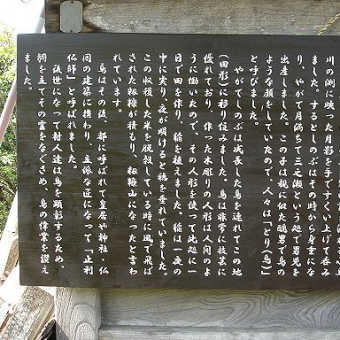 川の淵に映った月影を手ですくい上げ呑み
ました。するとしのぶはその時から身重にな
り、やがて月満ちて三ノ瀬という処で男児を
出産しました。この子は 似た醜男で鳥の
ような顔をしていたので、人々は「とり(鳥)」
と呼びました。
やがてしのぶは成長した鳥を連れてこの地
(田形)に移り住みました。鳥は非常に技芸に
優れており、作った木彫りの人形は人間のよ
うに働いたので、その人形を使って此処に一
日で田を作り、稲を植えました。稲は一夜の
中に実り、夜が明けると穂を垂れていました。
この収穫した米を脱穀している時に風で飛ば
された籾糠が積もり、糠塚山になったと言わ
れています。
鳥はその後、都に呼ばれて皇居や神社、仏
閣の建築に携わり、立派な匠になって「止利
仏師」と呼ばれました。
後世になって村人達は鳥を顕彰するため、
祠を立てその霊をなぐさめ、鳥の偉業を讃え
ました。